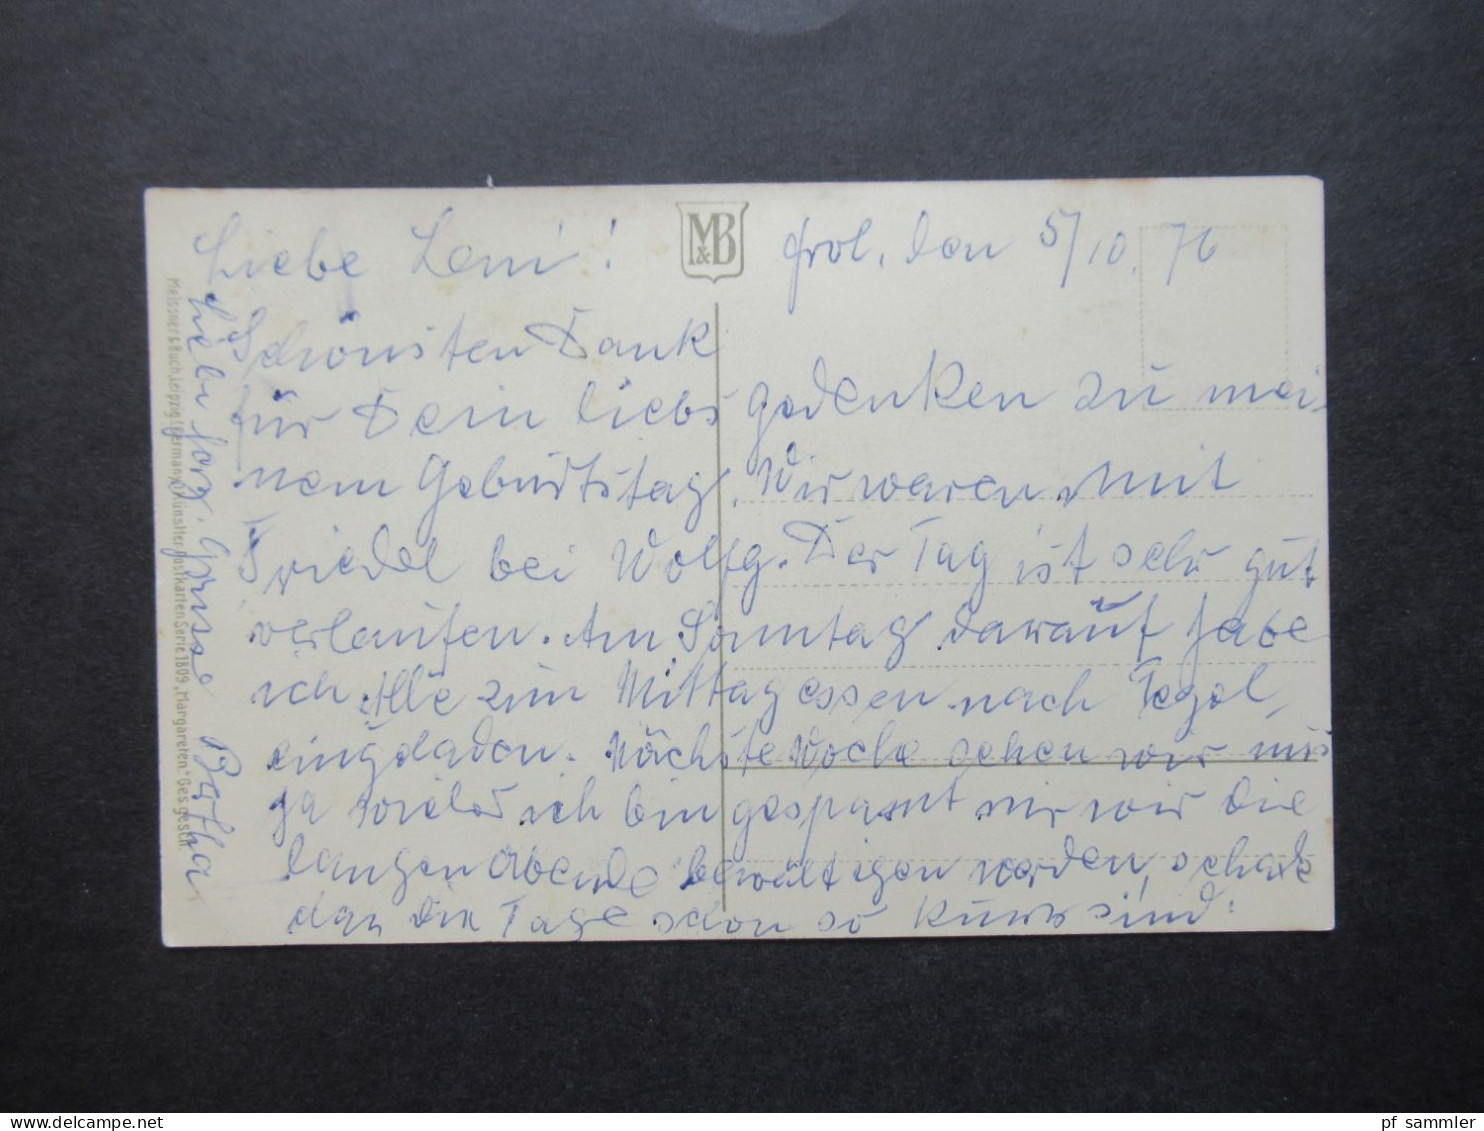 Liebe Leni!
M&B
den 5/10. 76
Schönsten Dank
für Dein liebs gedenken zu mei-
nem Geburtstag. Wir waren mit
Friedel bei Wolfg. Der Tag ist sehr gut
verlaufen. Am Sonntag darauf habe
ich Alle zum Mittagessen nach Tegel,
eingeladen. Nächste Woche sehen wir uns
ja wieder ich bin gespannt wir die
langen Abende bewältigen werden, schade
die Tage schon so kurz sind.
Liebe Grüsse Bertha
Meissner & Buch, Leipzig (Germany) Künstler Postkarten Serie 1809 „Margareten“ Ges. gesch.
pf sammler